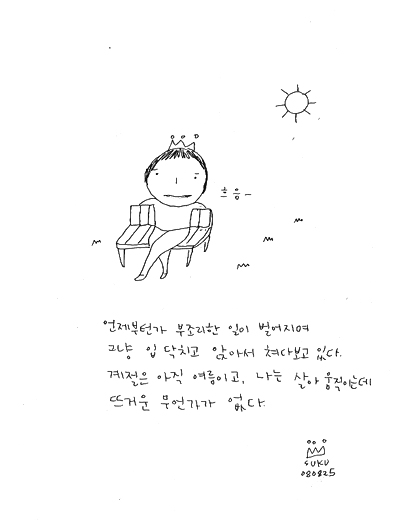 흐음-
언제부턴가 부조리한 일이 벌어지며
그냥 입 닥치고 앉아서 쳐다보고 있다.
계절은 아직 여름이고, 나는 살아 움직이는데
뜨거운 무언가가 없다.
SUKU
080825